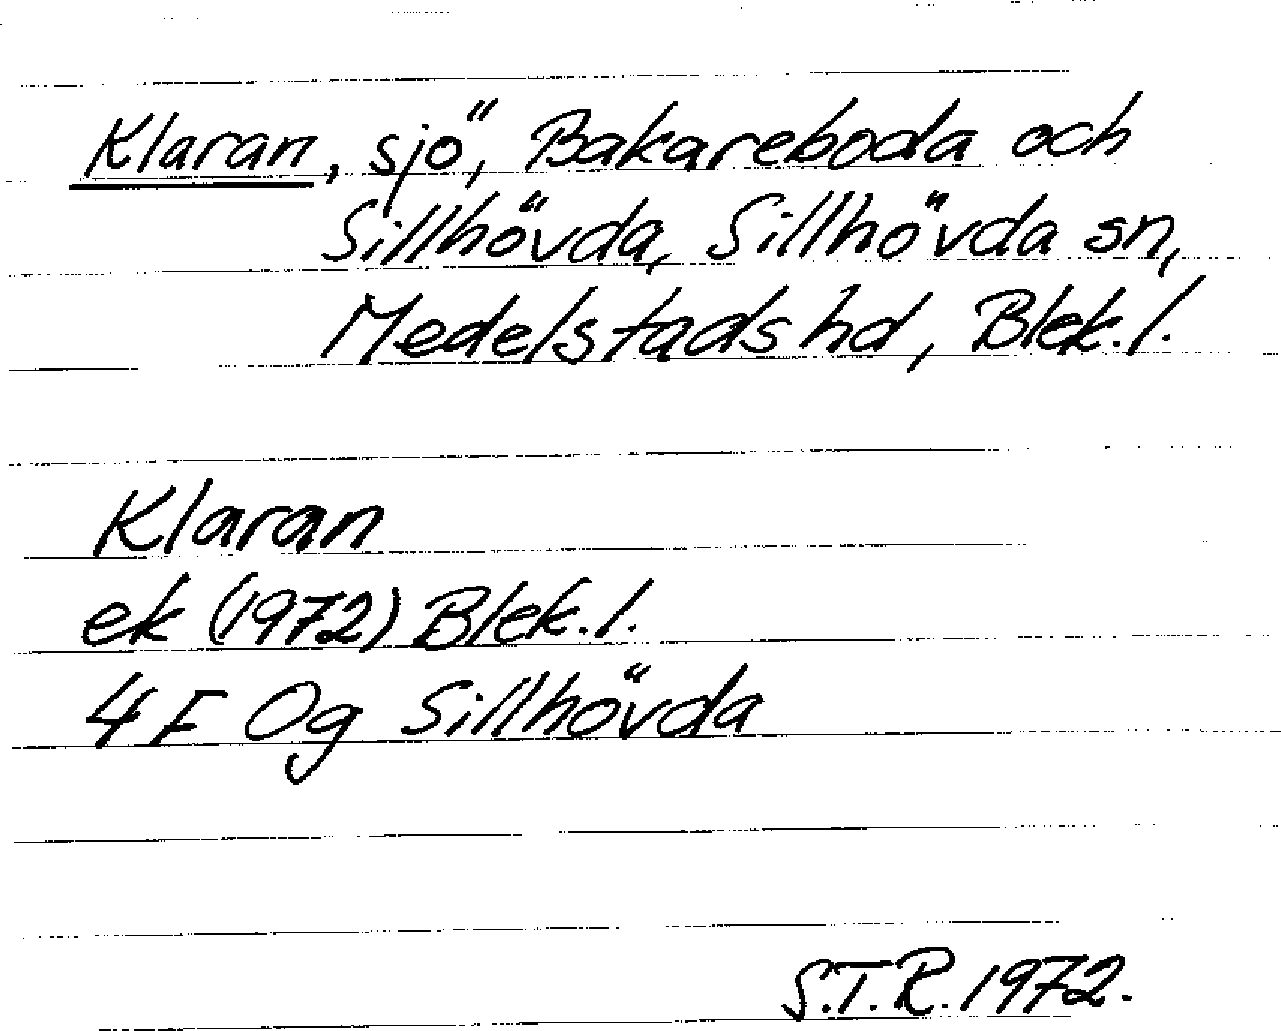 Klaran, sjö, Bakareboda och
Sillhövda, Sillhövda sn,
Medelstads hd, Blek. l.
Klaran
ek (1972) Blek. l.
4 F Og Sillhövda
S.T.R. 1972.